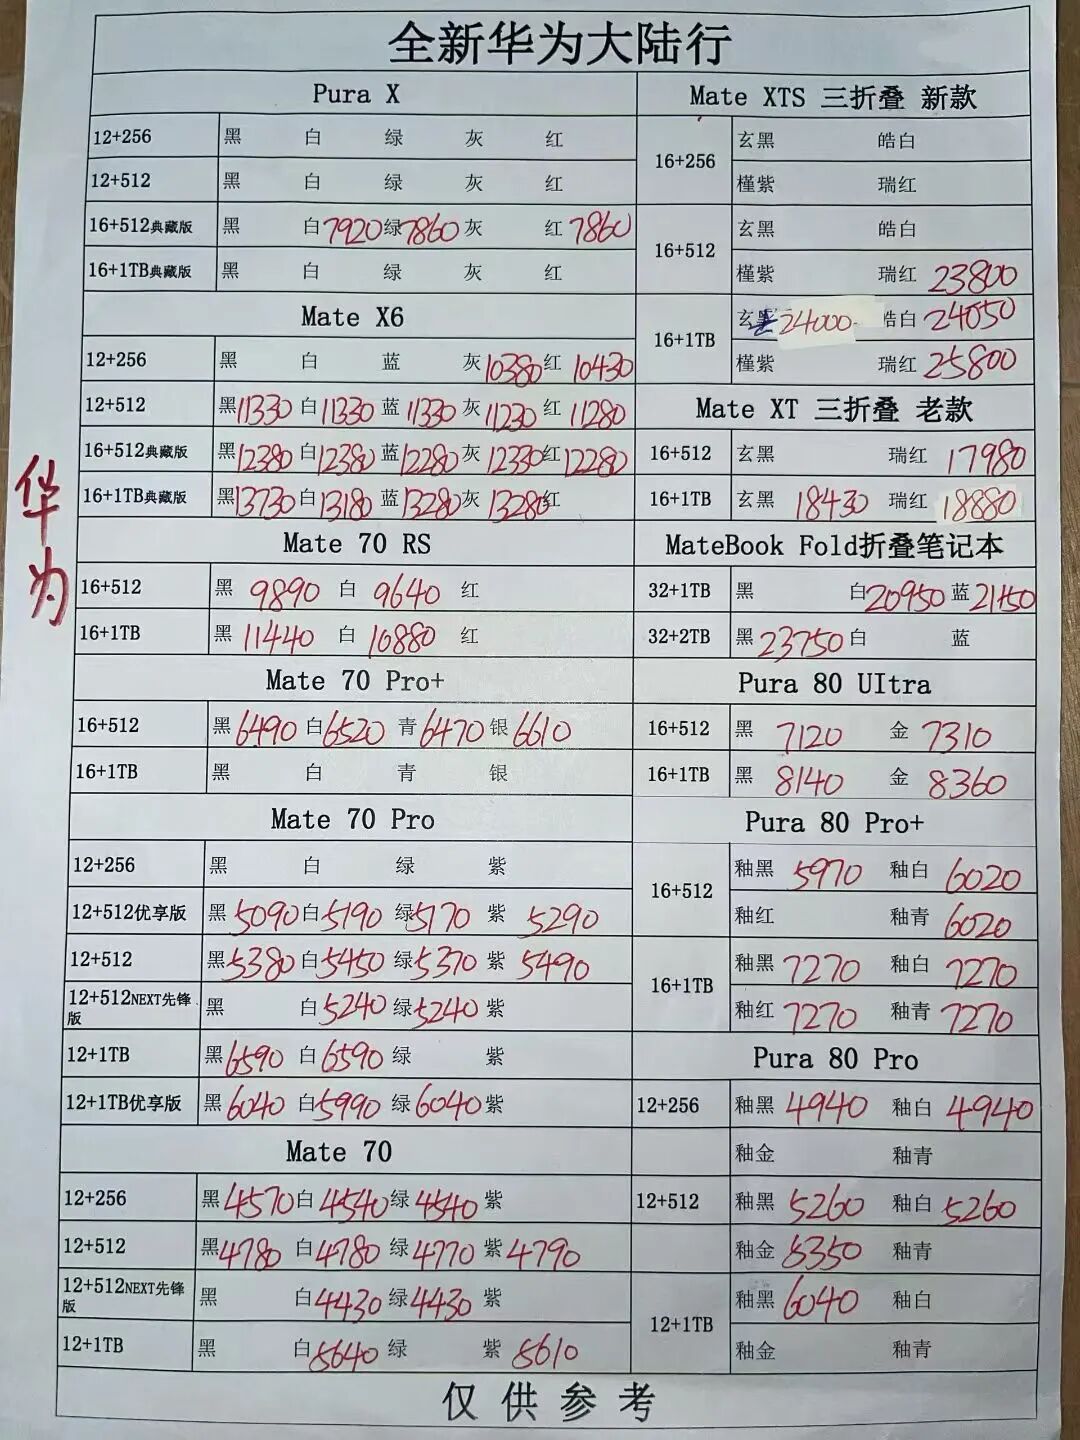 全新华为大陆行
Pura X
12+256 黑 白 绿 灰 红
12+512 黑 白 绿 灰 红
16+512典藏版 黑 白7920 绿7860 灰 红7860
16+1TB典藏版 黑 白 绿 灰 红
Mate X6
12+256 黑 白 蓝 灰10380 红10430
12+512 黑11330 白11330 蓝11330 灰11230 红11280
16+512典藏版 黑12380 白12380 蓝12280 灰12330 红12280
16+1TB典藏版 黑13730 白13180 蓝13280 灰13280 红
Mate 70 RS
16+512 黑 9890 白 9640 红
16+1TB 黑 11440 白 10880 红
Mate 70 Pro+
16+512 黑6490 白6520 青6470 银6610
16+1TB 黑 白 青 银
Mate 70 Pro
12+256 黑 白 绿 紫
12+512优享版 黑5090 白5190 绿5170 紫 5290
12+512 黑5380 白5450 绿5370 紫 5490
12+512NEXT先锋版 黑 白5240 绿5240 紫
12+1TB 黑6590 白6590 绿 紫
12+1TB优享版 黑6040 白5990 绿6040 紫
Mate 70
12+256 黑4570 白4540 绿4540 紫
12+512 黑4780 白4780 绿4770 紫4790
12+512NEXT先锋版 黑 白4430 绿4430 紫
12+1TB 黑 白5640 绿 紫 5610
Mate XTS 三折叠 新款
16+256 玄黑 皓白
槿紫 瑞红
16+512 玄黑 皓白
槿紫 瑞红 23800
16+1TB 玄黑 24000 皓白 24050
槿紫 瑞红 25800
Mate XT 三折叠 老款
16+512 玄黑 瑞红 17980
16+1TB 玄黑 18430 瑞红 18880
MateBook Fold折叠笔记本
32+1TB 黑 白20950 蓝21150
32+2TB 黑23750 白 蓝
Pura 80 UItra
16+512 黑 7120 金 7310
16+1TB 黑 8140 金 8360
Pura 80 Pro+
16+512 釉黑 5970 釉白 6020
釉红 釉青 6020
16+1TB 釉黑 7270 釉白 7270
釉红 7270 釉青 7270
Pura 80 Pro
12+256 釉黑 4940 釉白 4940
釉金 釉青
12+512 釉黑 5260 釉白 5260
釉金 5350 釉青
12+1TB 釉黑 6040 釉白
釉金 釉青
仅供参考
华为